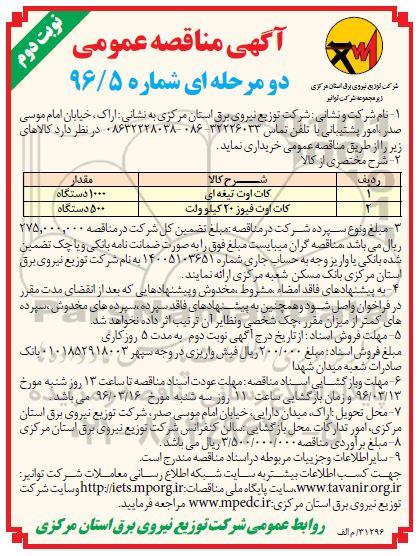 نوبت دوم
آگهی مناقصه عمومی
دو مرحله ای شماره ۹۶/۵
شرکت توزیع نیروی برق استان مرکزی
زیرمجموعه شرکت توانیر
۱- نام شرکت و نشانی: شرکت توزیع نیروی برق استان مرکزی به نشانی: اراک، خیابان امام موسی
صدر، امور پشتیبانی با تلفن تماس ۳۲۲۲۶۰۲۳-۰۸۶ ۰۸۶۳۲۲۲۸۰۳۸ در نظر دارد کالاهای
زیر را از طریق مناقصه عمومی خریداری نماید.
۲- شرح مختصری از کالا
ردیف شرح کالا مقدار
۱ کات اوت تیغه ای ۱۰۰۰ دستگاه
۲ کات اوت فیوز ۲۰ کیلو ولت ۵۰۰ دستگاه
۳- مبلغ ونوع سپرده شرکت در مناقصه: مبلغ تضمین کل شرکت در مناقصه ۲۷۵,۰۰۰,۰۰۰
ریال می باشد، مناقصه گران میبایست مبلغ فوق را به صورت ضمانت نامه بانکی ویا چک تضمین
شده بانکی یا واریز وجه به حساب جاری شماره ۱۴۰۰۵۱۰۳۶۵۱ به نام شرکت توزیع نیروی برق
استان مرکزی بانک مسکن شعبه مرکزی ارائه نمایند.
۴- به پیشنهادهای فاقد امضاء، مشروط، مخدوش وپیشنهادهایی که بعد از انقضای مدت مقرر
در فراخوان واصل شود وهمچنین به پیشنهادهای فاقد سپرده، سپرده های مخدوش، سپرده
های کمتر از میزان مقرر، چک شخصی ونظایر آن ترتیب اثر داده نخواهد شد.
۵- مهلت فروش اسناد: از تاریخ درج آگهی نوبت دوم به مدت ۵ روز کاری
مبلغ فروش اسناد: مبلغ ۲۰۰/۰۰۰ ریال فیش واریزی در وجه سپهر ۰۱۰۱۸۵۲۹۱۸۰۰۳ بانک
صادرات شعبه میدان شهدا
۶- مهلت وبازگشایی اسناد مناقصه: مهلت عودت اسناد مناقصه تا ساعت ۱۳ روز شنبه مورخ
۹۶/۰۳/۱۳ و زمان بازگشایی ساعت ۱۱ روز سه شنبه مورخ ۹۶/۰۳/۱۶ می باشد.
۷- محل تحویل: اراک، میدان دارایی، خیابان امام موسی صدر، شرکت توزیع نیروی برق استان
مرکزی، امور تدارکات محل بازگشایی سالن کنفرانس شرکت توزیع نیروی برق استان مرکزی
۸- مبلغ برآوردی مناقصه ۳/۵۰۰/۰۰۰/۰۰۰ ریال می باشد.
۹- سایر اطلاعات وجزییات مربوطه در اسناد مناقصه مندرج است.
جهت کسب اطلاعات بیشتر به سایت شبکه اطلاع رسانی معاملات شرکت توانیر:
www.tavanir.org.ir سایت پایگاه ملی مناقصات: http://iets.mporg.ir وسایت شرکت
توزیع نیروی برق استان مرکزی: www.mpedc.ir مراجعه فرمایید.
روابط عمومی شرکت توزیع نیروی برق استان مرکزی
۳۱۲۹۶/ م الف